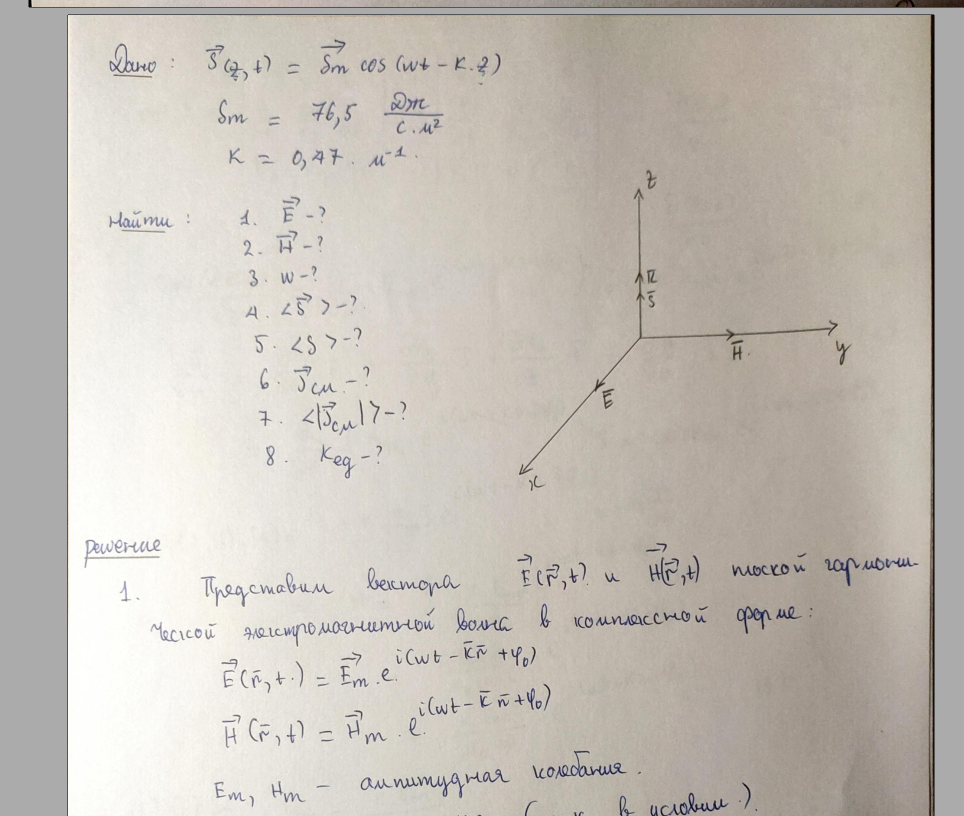 Дано: S⃗(z,t) = S⃗m cos(wt - k.z)
Sm = 76,5 Дж/с.м²
K = 0,47. м⁻¹.
Найти: 1. E⃗ -?
2. H⃗ -?
3. w -?
4. <S⃗> -?
5. <S> -?
6. J⃗см -?
7. <|J⃗см|> -?
8. Kед -?
z
k̄
S̄
H̄.
y
Ē
x
Решение
1. Представим вектора E⃗(r⃗,t) и H⃗(r⃗,t) плоской гармони-
ческой электромагнитной волна в комплексной форме:
E⃗(r̄,t.) = E⃗m.e.^i(wt - k̄r̄ + φ₀)
H⃗(r̄,t) = H⃗m.e.^i(wt - k̄r̄ + φ₀)
Em, Hm - ампитудная колебания.
в условии.)